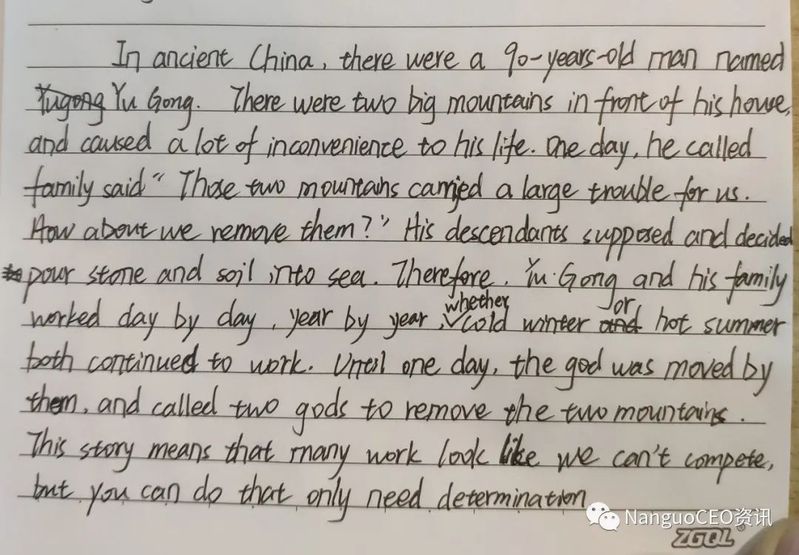 In ancient China, there were a 90-years-old man named
Yugong Yu Gong. There were two big mountains in front of his house,
and caused a lot of inconvenience to his life. One day, he called
family said “Those two mountains carried a large trouble for us.
How about we remove them?” His descendants supposed and decided
pour stone and soil into sea. Therefore, Yu Gong and his family
worked day by day, year by year, whether cold winter and or hot summer
both continued to work. Until one day, the god was moved by
them, and called two gods to remove the two mountains.
This story means that many work look like we can't compete,
but you can do that only need determination
NanguoCEO资讯
ZGQL